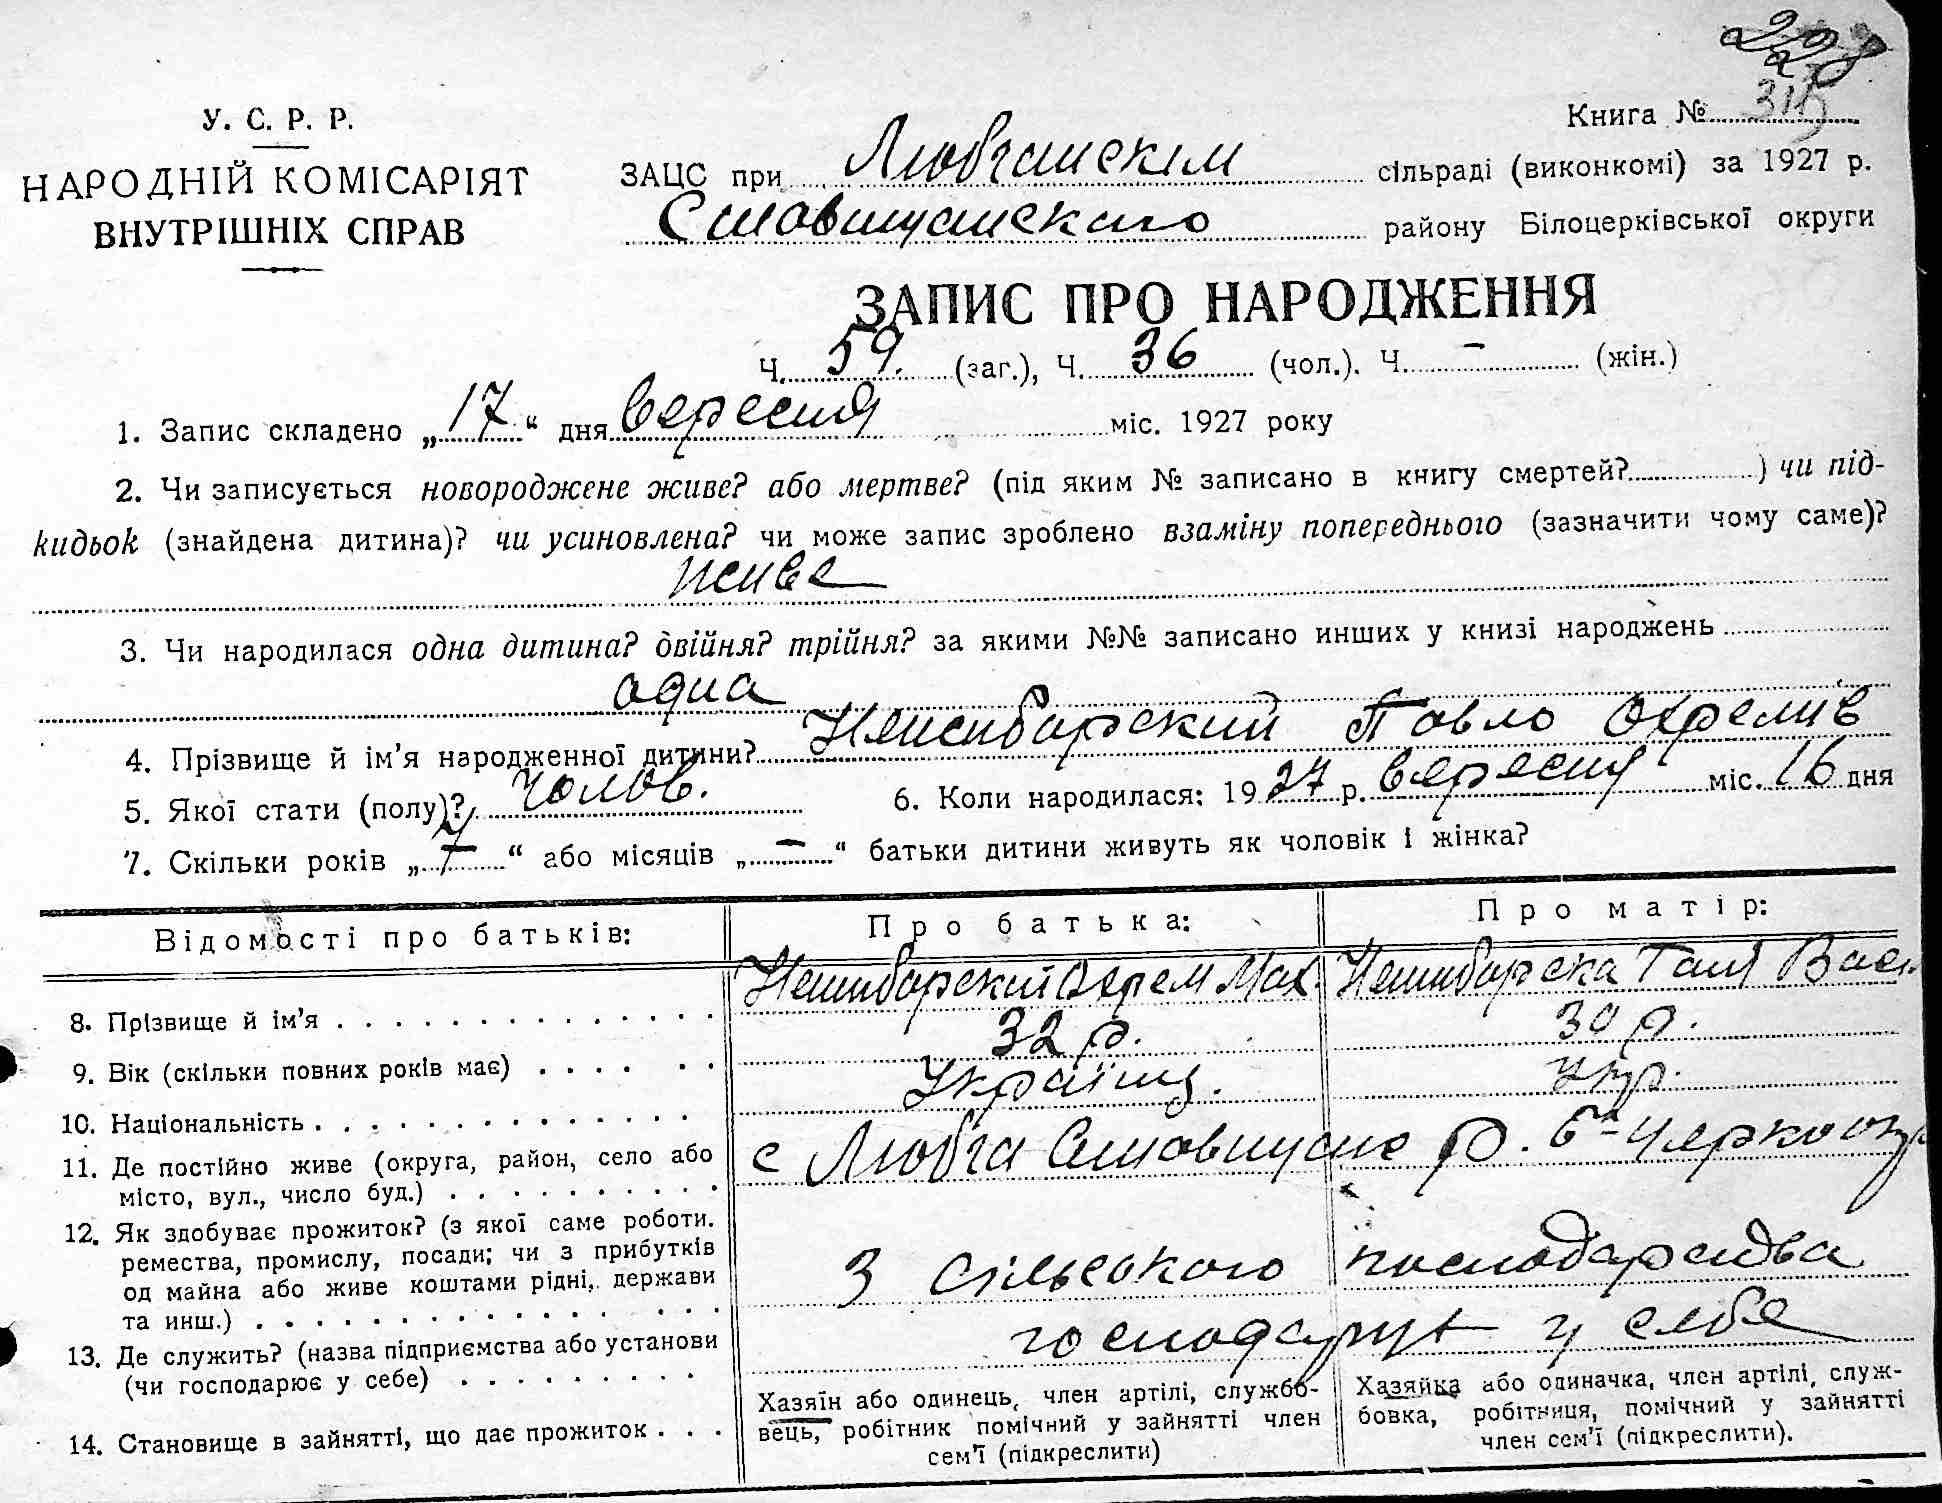 228
315
У. С. Р. Р.
НАРОДНІЙ КОМІСАРІЯТ
ВНУТРІШНІХ СПРАВ
Книга №
ЗАЦС при Любчанскім сільраді (виконкомі) за 1927 р.
Ставищанского району Білоцерківської округи
ЗАПИС ПРО НАРОДЖЕННЯ
Ч. 59. (заг.), Ч. 36 (чол.). Ч. – (жін.)
1. Запис складено „17“ дня вересня міс. 1927 року
2. Чи записується новороджене живе? або мертве? (під яким № записано в книгу смертей? ) чи під-
кидьок (знайдена дитина)? чи усиновлена? чи може запис зроблено взаміну попереднього (зазначити чому саме)?
живе
3. Чи народилася одна дитина? двійня? трійня? за якими №№ записано инших у книзі народжень
одна
4. Прізвище й ім’я народженної дитини? Павло Охремів
5. Якої стати (полу)? чолов. 6. Коли народилася: 1927 р. вересня міс. 16 дня
7. Скільки років „7“ або місяців „–“ батьки дитини живуть як чоловік і жінка?
Відомості про батьків: Про батька: Про матір:
8. Прізвище й ім’я Нешиборский Охрем Мах. Нешиборска Галя Вас.
9. Вік (скільки повних років має) 32 р. 30 р.
10. Національність Україн. Укр.
11. Де постійно живе (округа, район, село або
місто, вул., число буд.) с Любча Ставищан р. Б-Церко окр
12. Як здобуває прожиток? (з якої саме роботи.
ремества, промислу, посади; чи з прибутків
од майна або живе коштами рідні, держави
та инш.) З сільського господарства
13. Де служить? (назва підприємства або установи
(чи господарює у себе) господарують у себе
14. Становище в зайнятті, що дає прожиток
Хазяїн або одинець, член артілі, службо-
вець, робітник помічний у зайнятті член
сем’ї (підкреслити)
Хазяйка або одиначка, член артілі, служ-
бовка, робітниця, помічний у зайнятті
член сем’ї (підкреслити).